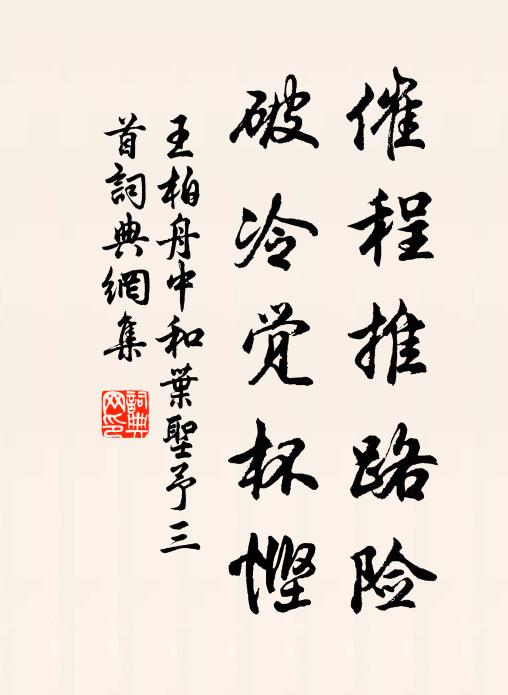 催程推路险
破冷觉杯悭
王柏舟中和葉聖予三
首詞典網集
詞典
网印